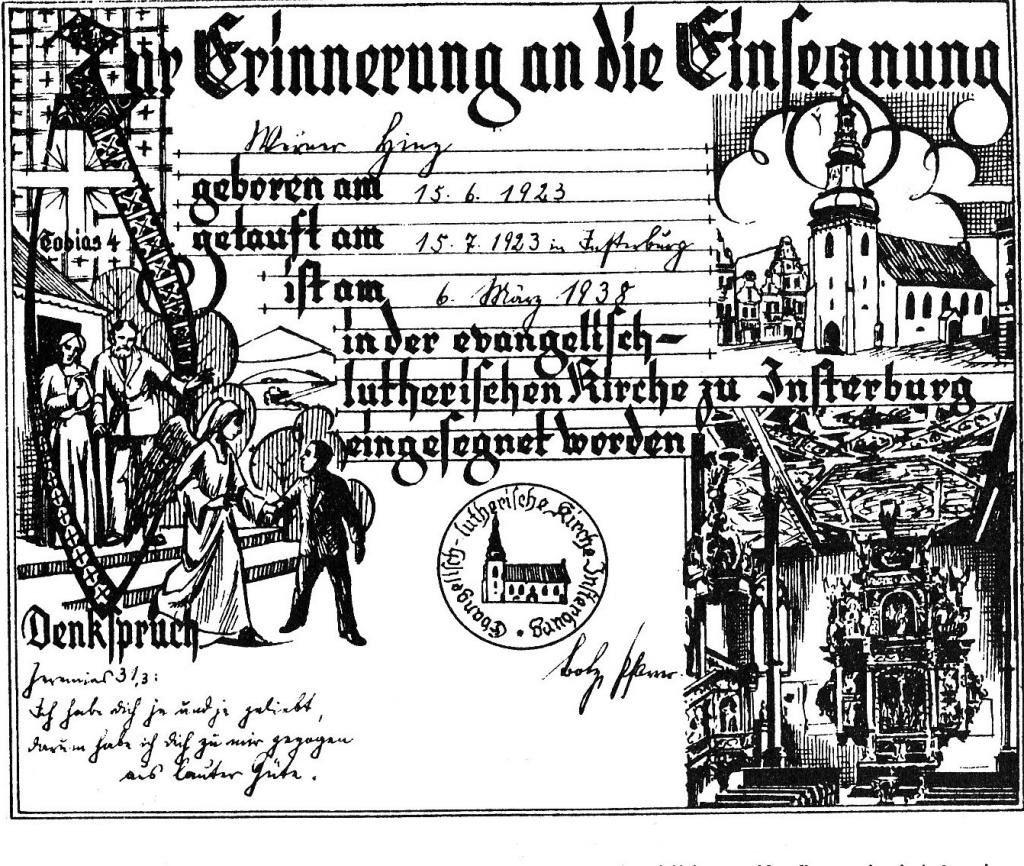 Zur Erinnerung an die Einsegnung
Werner Hinz
geboren am 15. 6. 1923
getauft am 15. 7. 1923 in Insterburg
ist am 6. März 1938
in der evangelisch-
lutherischen Kirche zu Insterburg
eingesegnet worden
Tobias 4
Evangelisch-lutherische Kirche Insterburg
Pfarrer
Denkspruch
Jeremias 31,3:
Ich habe dich je und je geliebt,
darum habe ich dich zu mir gezogen
aus lauter Güte.